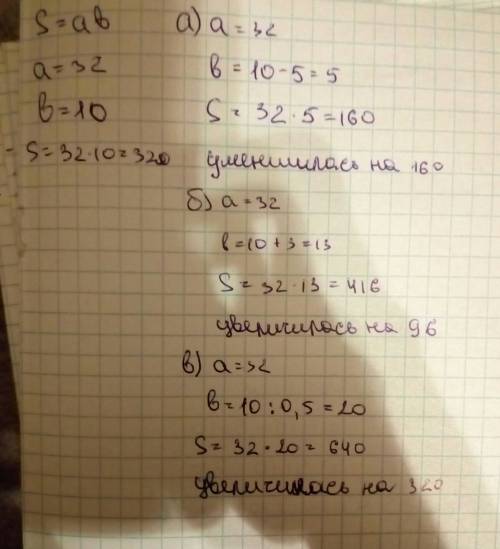 S = ab
a = 32
b = 10
S = 32 · 10 = 320
а) a = 32
b = 10 - 5 = 5
S = 32 · 5 = 160
уменшилась на 160
б) a = 32
b = 10 + 3 = 13
S = 32 · 13 = 416
увеличилась на 96
в) a = 32
b = 10 : 0,5 = 20
S = 32 · 20 = 640
увеличилась на 320